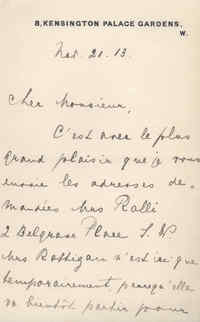 8, KENSINGTON PALACE GARDENS,
W.
21. 13.
Cher Monsieur,
C'est avec le plus
grand plaisir que je vous
envoie les adresses de-
mandées Mrs Ralli
2 Belgrave Place S.W
Mrs n'est ici que
temporairement, puisqu'elle
va bientôt partir pour